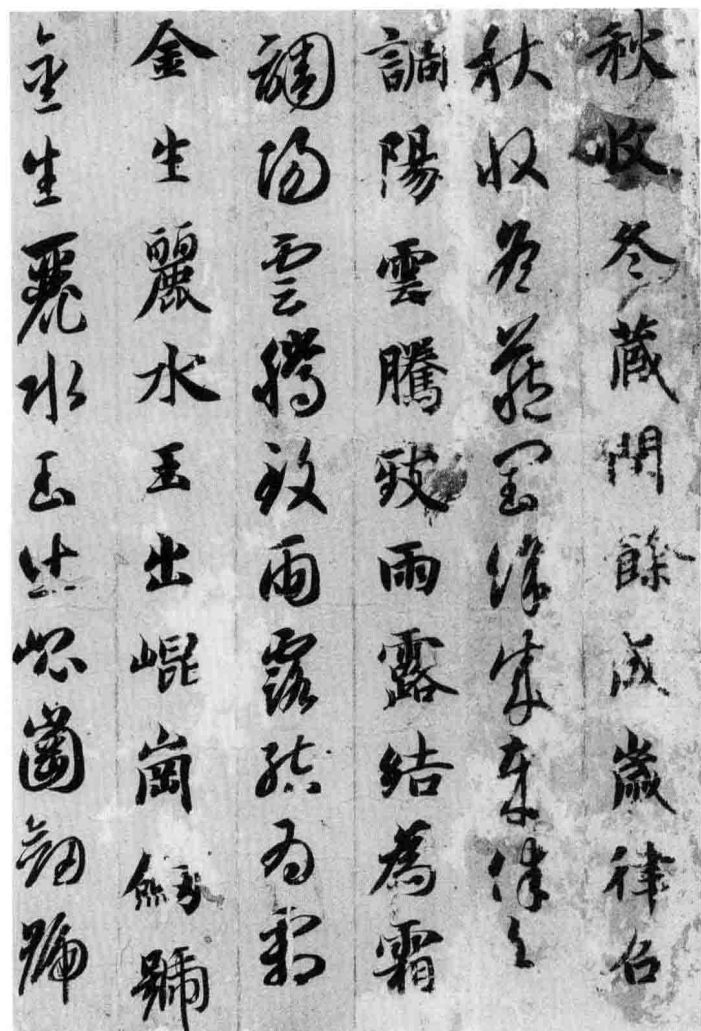 秋收冬藏閏餘成歲律召
秋收冬藏閏餘成歲律召
調陽雲騰致雨露結為霜
調陽雲騰致雨露結為霜
金生麗水玉出崐崗劔號
金生麗水玉出崐崗劔號